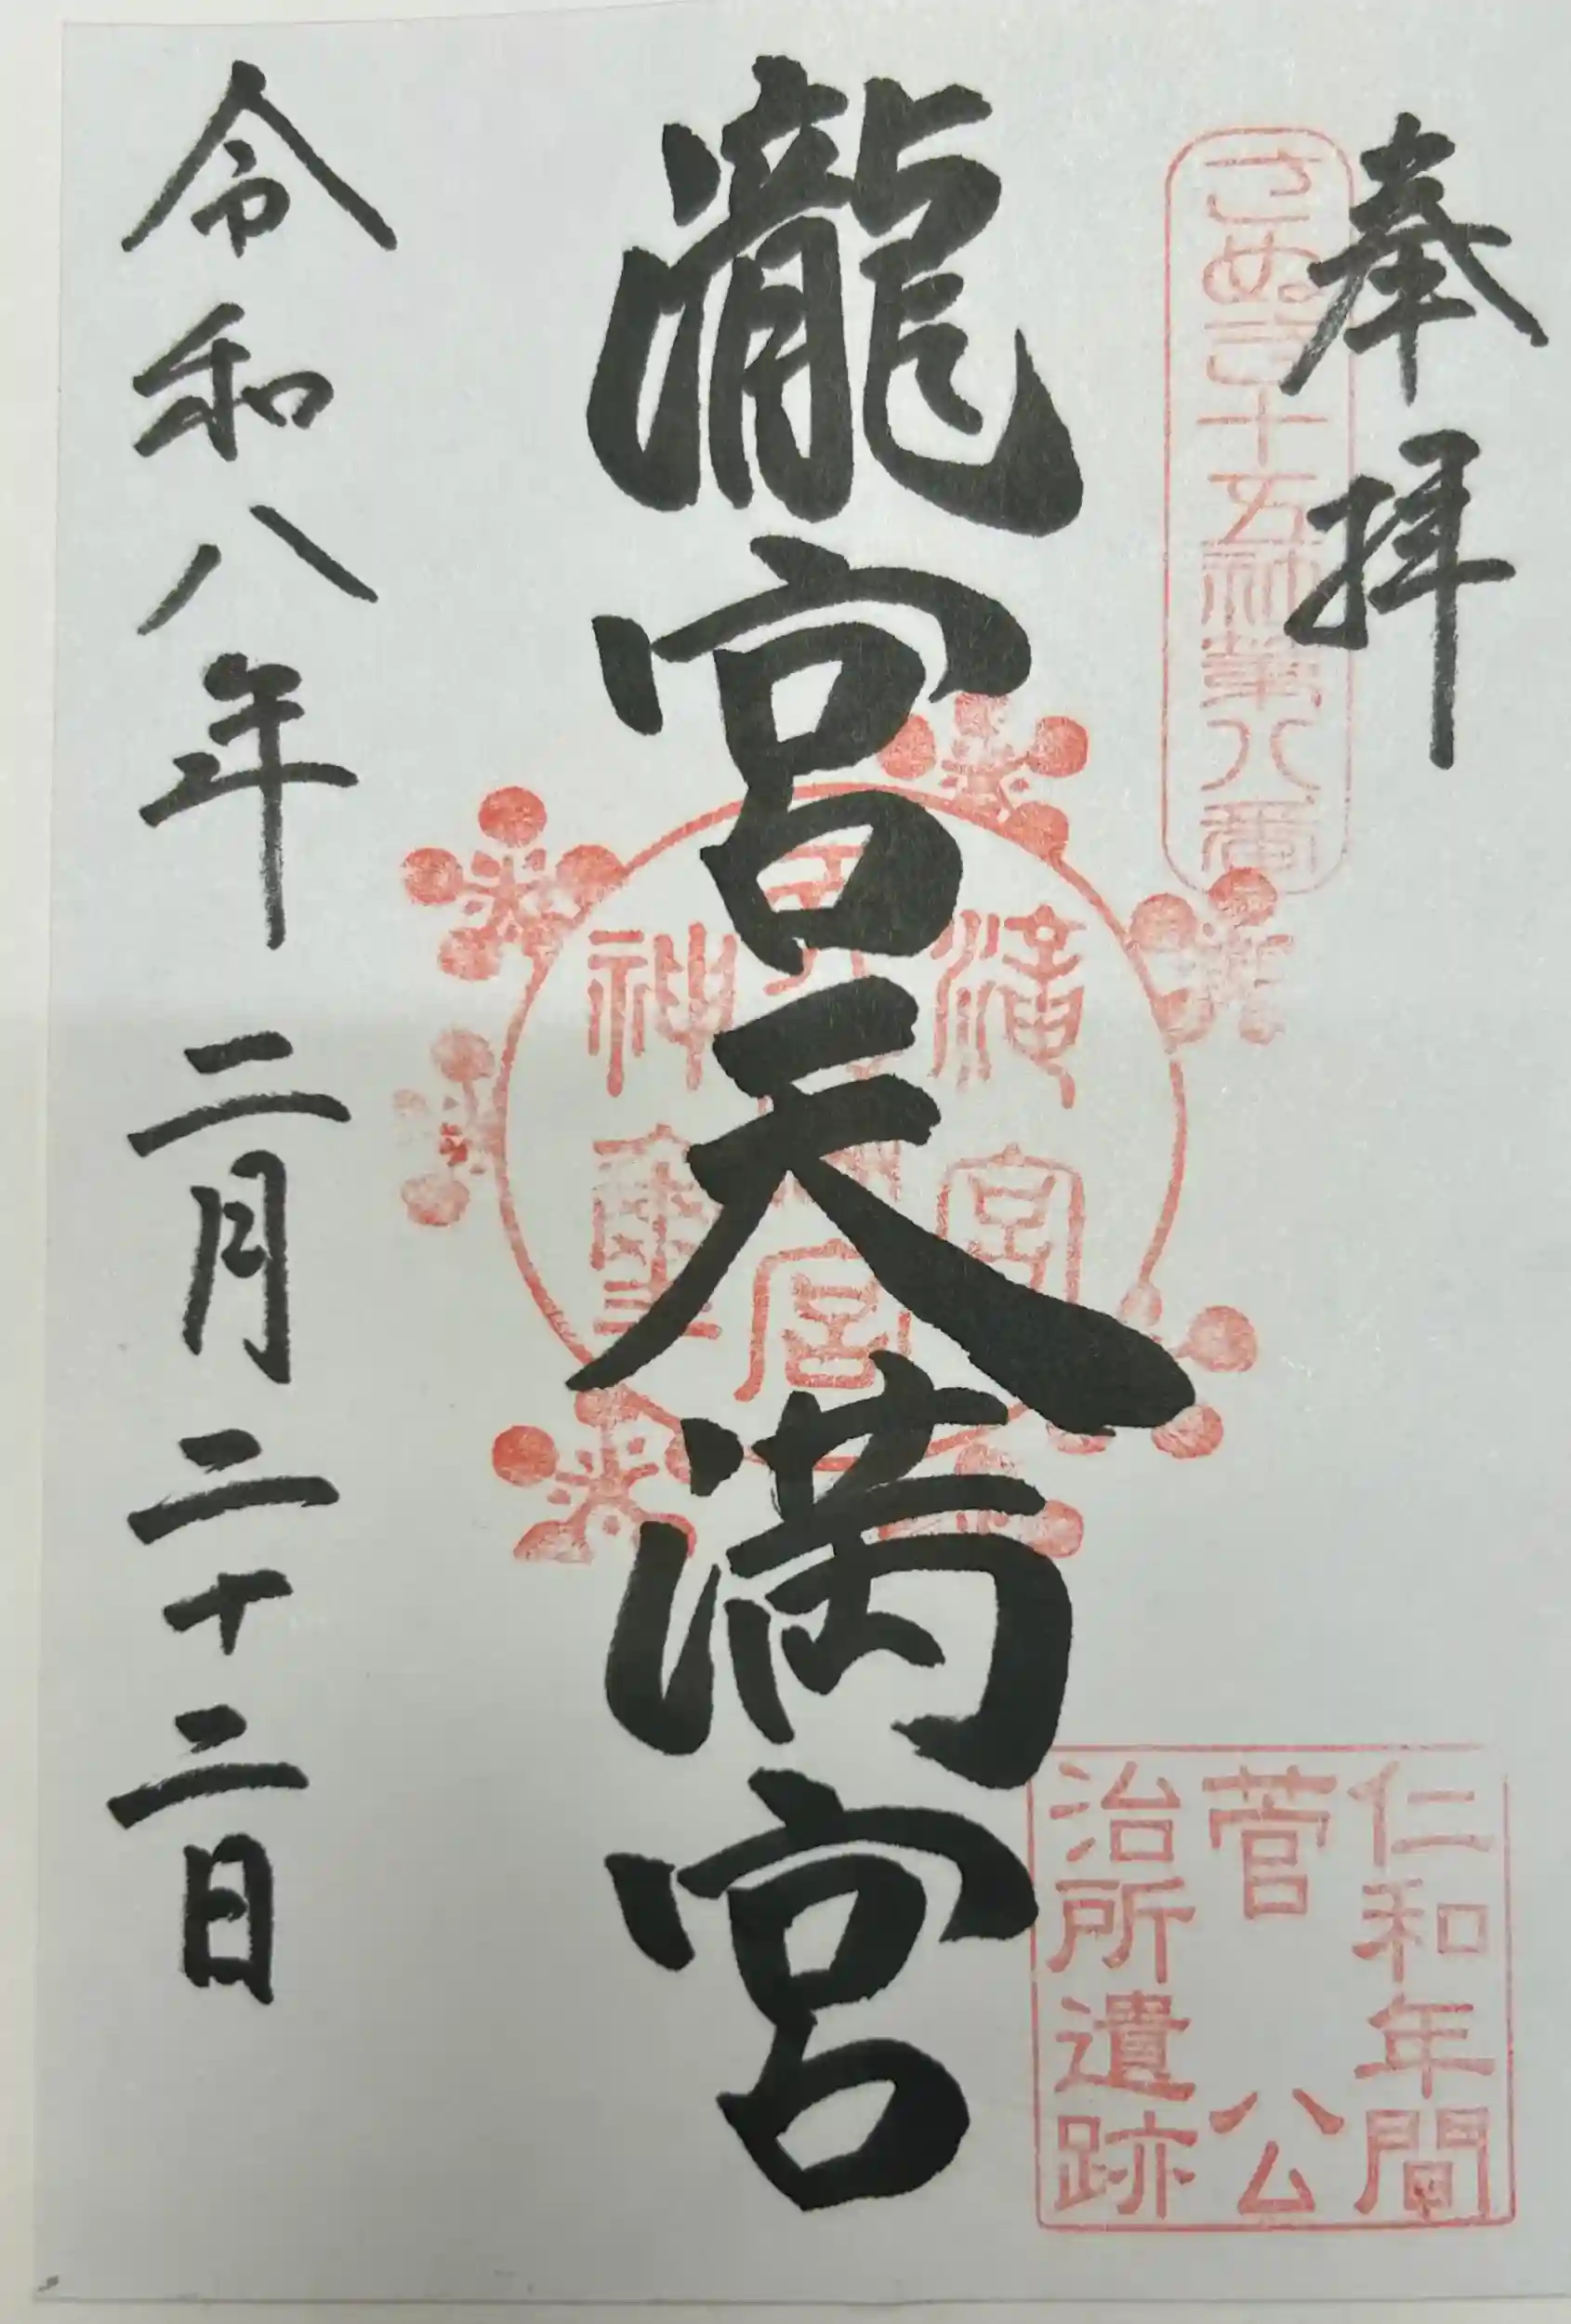 奉拝
さぬき十五社第八番
仁和年間
菅公
治所遺跡
瀧宮天満宮
令和八年二月二十二日